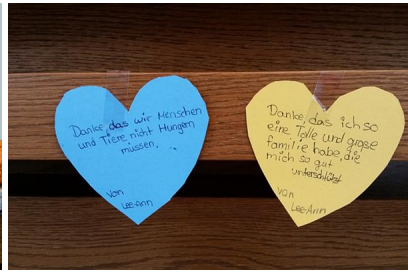 Danke, das wir Menschen
und Tiere nicht Hungern
müssen.
von
Lee-Ann
Danke, das ich so
eine Tolle und große
familie habe, die
mich so gut
unterschtützt
von
Lee-Ann